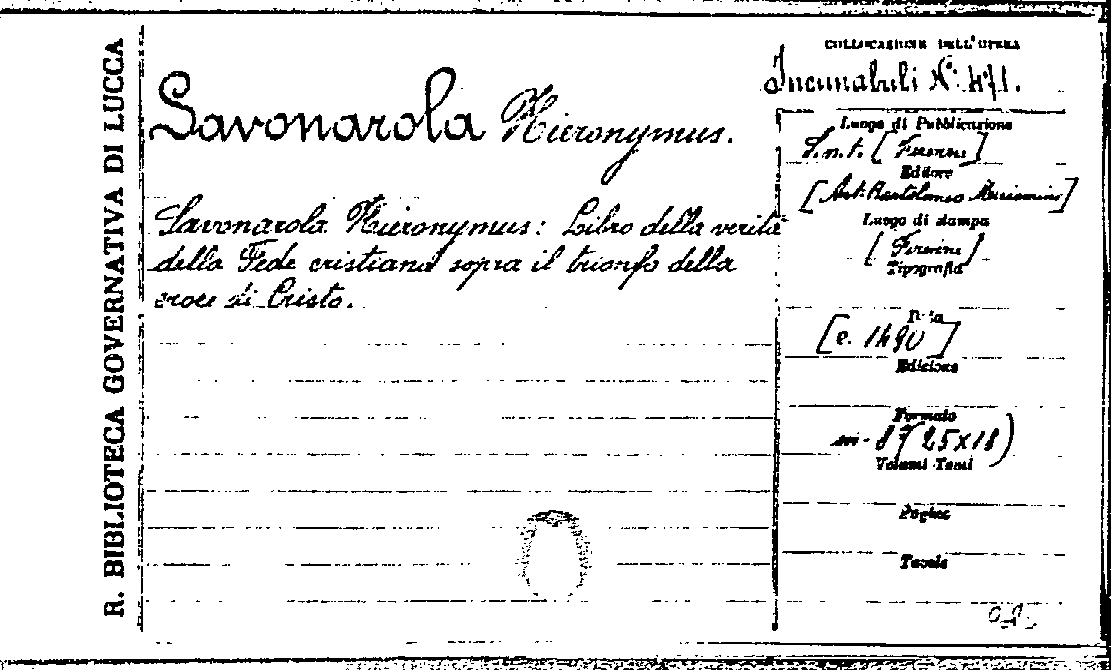 R. BIBLIOTECA GOVERNATIVA DI LUCCA
Savonarola Hieronymus.
Savonarola Hieronymus: Libro della verità
della Fede cristiana sopra il trionfo della
croce di Cristo.
COLLOCAZIONE DELL'OPERA
Incunabuli N. 471.
Luogo di Pubblicazione
S.n.t. [Firenze]
Editore
[Art. Bartolomeo
Luogo di stampa
[Firenze]
Tipografia
Data
[c. 1490]
Edizione
Formato
in-8° (25x18)
Volumi-Tomi
Pagine
Tavole